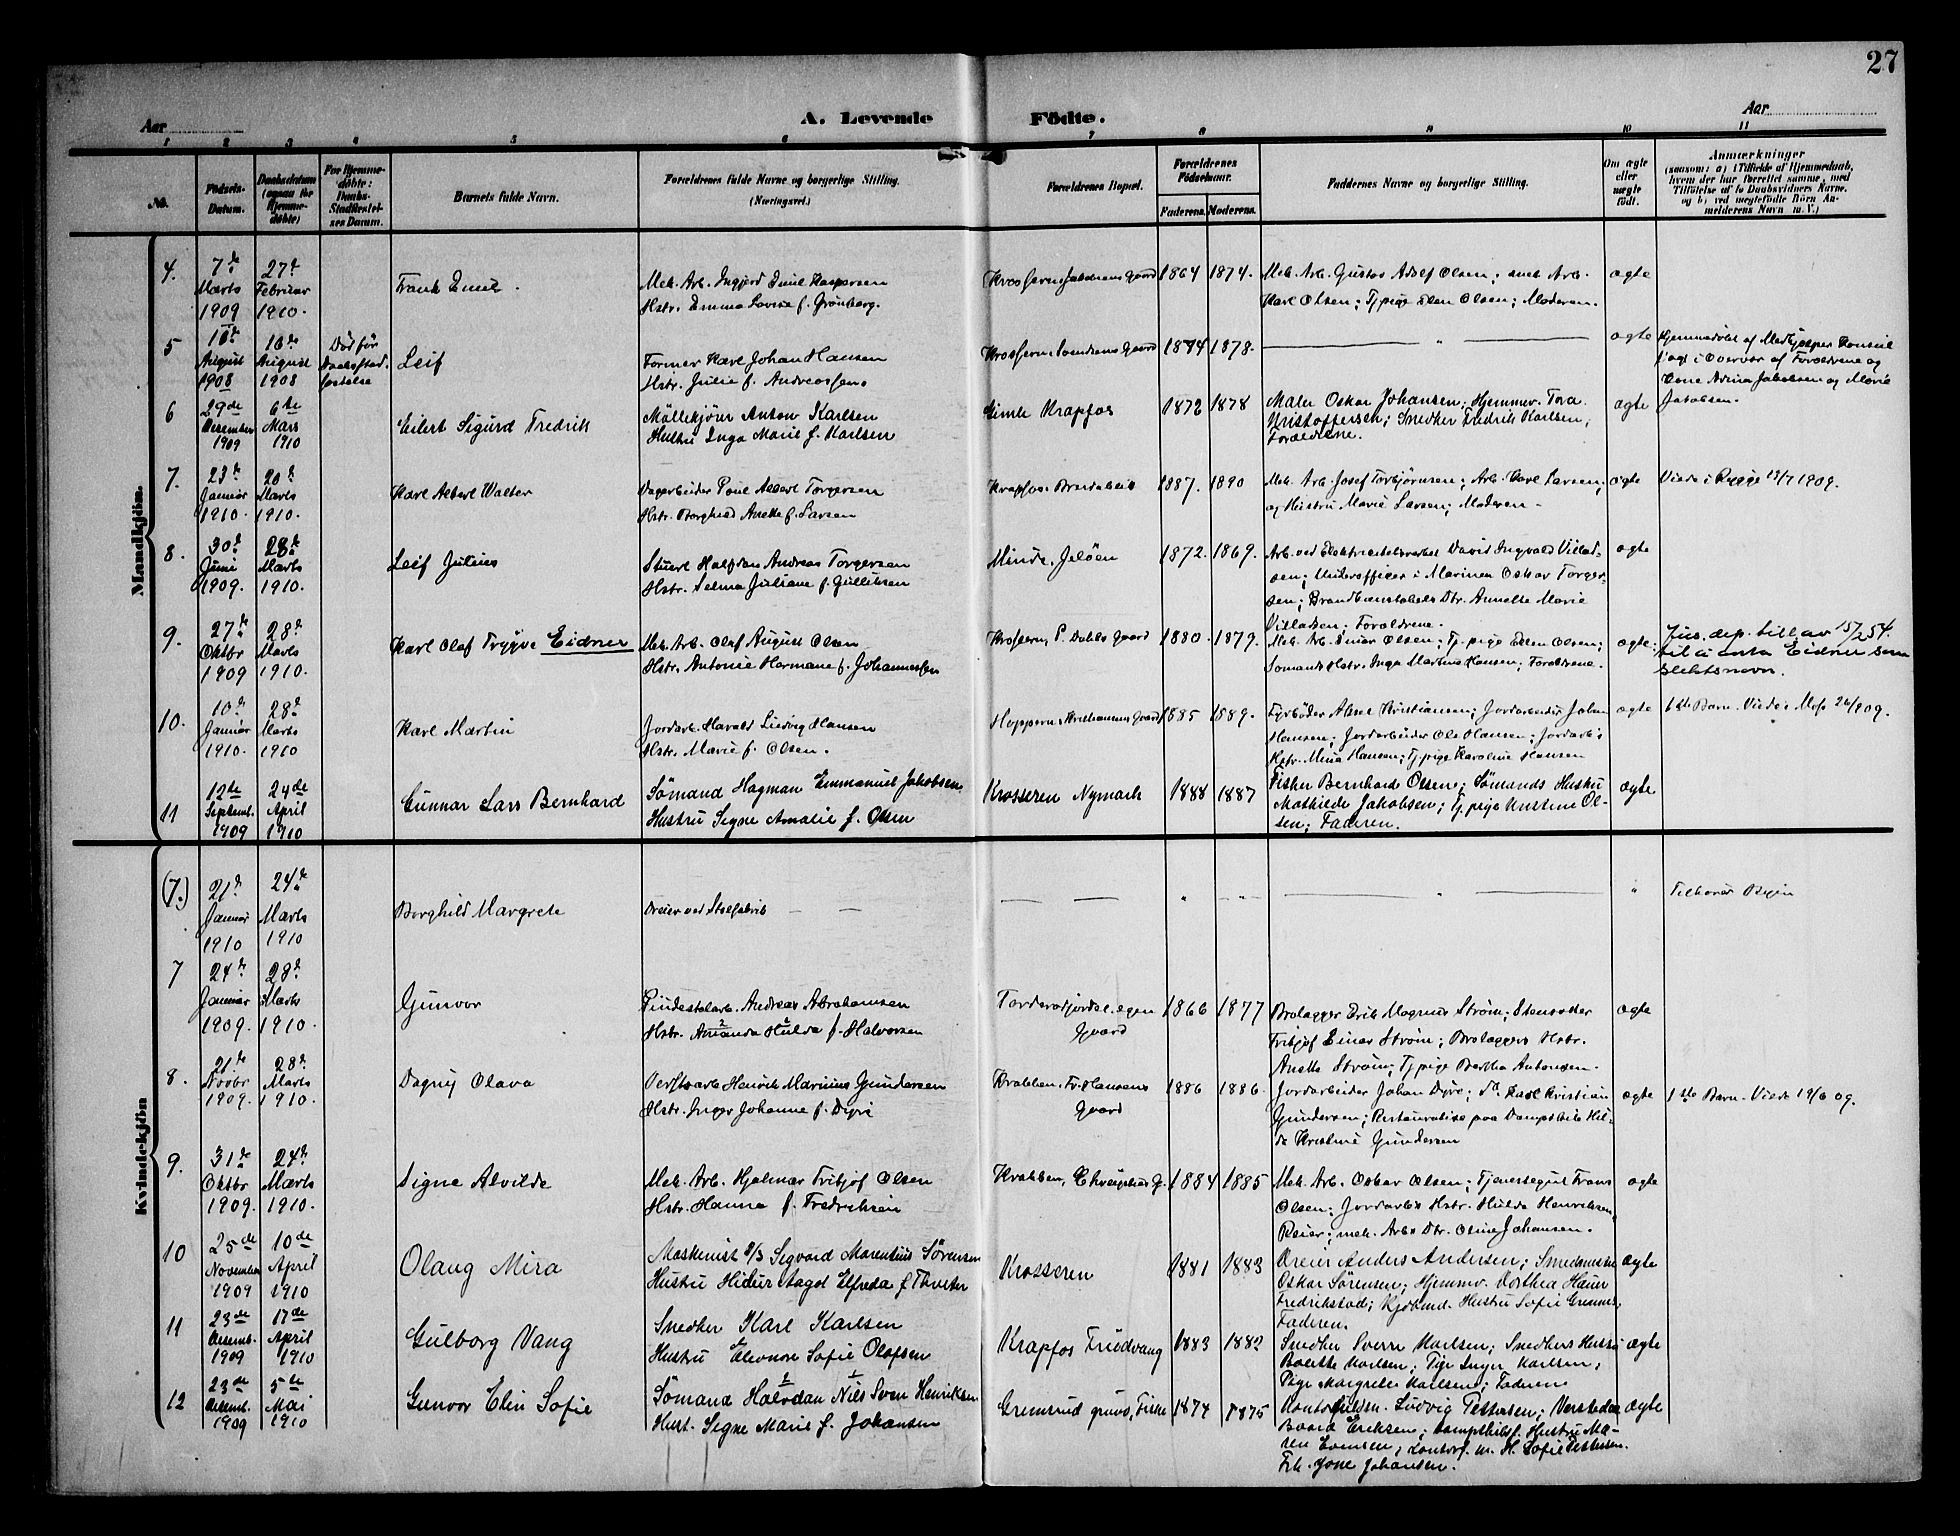 27
A. Levende Födte.
Aar
Aar
1 2 3 4 5 6 7 8 9 10 11
No.
Födsels-Datum.
Daabsdatum (ogsaa for Hjemmedöbte)
For Hjemmedöbte: Daabs-Stadfæstelses Datum.
Barnets fulde Navn.
Forældrenes fulde Navne og borgerlige Stilling. (Næringsvei.)
Forældrenes Bopæl.
Forældrenes Födselsaar.
Faderens. Moderens.
Faddernes Navne og borgerlige Stilling.
Om ægte eller uægte födt.
Anmærkninger
(saasom: a) i Tilfælde af Hjemmedaab,
hvem der har forrettet samme, med
Tilföielse af to Daabsvidners Navne.
og b) ved uægtefödte Börn An-
melderens Navn m. V.)
Mandkjön.
4. 7de Marts 1909 27de Februar 1910. Frank Emil. Mek. Arb. Ingjard Emil Kaspersen
Hstr. Emma Lovise f. Grønberg. 1864 1874. Mek. Arb. Gustav Adolf Olsen; mek Arb.
Karl Olsen; Tj.pige Elen Olsen; Moderen. ægte
5 August 1908 16de August 1908 Død før Daabsstadfæstelse Leif Former Karl Johan Hansen
Hstr. Julie f. Andreassen 1874 1878. " ægte Hjemmedøbt af
i Overvær af Forældrene og
Kone Adina Jakobsen og Marie
Jakobsen.
6 29de Desember 1909 6te Mars 1910 Eilert Sigurd Fredrik Möllekjörer Anton Karlsen
Hustru Inga Marie f. Karlsen Gimle Krapfos 1872 1878 Maler Oskar Johansen; Hjemmev. Tora
Kristoffersen; Snedker Fredrik Karlsen;
Forældrene. ægte
7. 23de Januar 1910. 20de Marts 1910. Karl Albert Walter Dagarbeider Poul Albert Torgersen
Hstr. Borghild Anette f. Larsen Krapfos 1887. 1890 Mek. Arb. Josef Torbjørnsen; Arb. Karl Larsen;
og Hustru Marie Larsen; Moderen. ægte Viede i Rygge 1909.
8. 30de Juni 1909. 28de Marts 1910. Leif Julius Stuert Halfdan Andreas Torgersen
Hstr. Selma Juliane f. Gulliksen Minde, Jeløen 1872. 1869. Arb. ved Elektricitetsverket David Ingvald Villad-
sen; Underofficer i Marinen Oskar Torger-
sen; Dtr. Annette Marie
Villadsen; Forældrene. ægte
9. 27de Oktbr 1909 28de Marts 1910. Karl Olaf Trygve Eidner Mek. Arb. Olaf August Olsen
Hstr. Antonie Hermane f. Johannessen Krossern, P. Dahls Gaard 1880. 1879. Mek. Arb. Einar Olsen; Tj.pige Ellen Olsen;
Sømands Hstr. Inga Martina Hansen; Forældrene. ægte. Jus. dep. till. av 15/2 54.
til å anta Eidner som
slektsnavn.
10. 10de Januar 1910. 28de Marts 1910 Karl Martin Jordarb. Harald Ludvig Hansen
Hstr. Marie f. Olsen. 1885 1889. Fyrbøder Aksel Kristiansen; Jordarbeider Johan
Hansen; Jordarbeider Ole Hansen; Jordarb's
Hstr. Mina Hansen; Tj.pige Karoline Hansen ægte 1ste Barn. Viede i Mos 1909.
11 12te Septemb. 1909 24de April 1910 Gunnar Lars Bernhard Sömand Hagman Emmanuel Jakobsen
Hustru Signe Amalie f. Olsen Krosseren Nymark 1888 1887 Fisker Bernhard Olsen; Sömands Hustru
Mathilde Jakobsen; Tj.pige Kristine Ol-
sen; Faderen. ægte
Kvindekjön
(7.) 21de Januar 1910 24de Marts 1910 Borghild Margrete Dreier ved Stolfabrik " " " Tilhører Byen
7 24de Januar 1909. 28de Marts 1910. Gunvor Andreas Abrahamsen
Hstr. Amanda Hulda f. Halvorsen egen
Gaard 1866 1877 Brolægger Erik Magnus Strøm; Stensætter
Fritjof Einar Strøm; Brolæggers Hstr.
Anette Strøm; Tj.pige Bertha Antonsen. ægte
8. 21de Novbr 1909. 28de Marts 1910. Dagny Olava Verftsarb. Henrik Marinius Gundersen
Hstr. Inger Johanne f. Dyre Krabben, Fr. Hansens
Gaard 1886 1886. Jordarbeider Johan Dyre; do. Karl Kristian
Gundersen; paa Dampskib Hil-
da Kristine Gundersen ægte 1ste Barn. Viede 19/6 09.
9. 31de Oktbr 1909. 24de Marts 1910. Signe Alvilde Mek. Arb. Hjalmar Fritjof Olsen
Hstr. Hanna f. Fredriksen Krabben, 1884 1885 Mek. Arb. Oskar Olsen; Tjenestegut Frans
Olsen; Jordarb's Hstr. Hulda Henriksen,
Reier; mek. Arb's Dtr. Oline Johansen. ægte
10 25de November 1909 10de April 1910 Olaug Mira Maskinist D/S Sigvard Marentius Sörensen
Hustru Hildur Aagot Elfreda f. Krosseren 1881 1883 Dreier Anders Andersen;
Oskar Sörensen; Hjemmev. Dorthea
Fredrikstad; Kjöbmd. Hustru Sofie
Faderen. ægte
11 23de Desemb. 1909 17de April 1910 Gulborg Vang Snedker Karl Karlsen
Hustru Eleonore Sofie Olafsen Krapfos Friedvang 1883 1882 Snedker Sverre Karlsen; Snedkers Hustru
Bolette Karlsen; Pige Inger Karlsen;
Pige Margrethe Karlsen; Faderen ægte
12 23de Desemb. 1909 5te Mai 1910 Gunvor Elin Sofie Sömand Halvdan Nils Sven Henriksen
Hust. Signe Marie f. Johansen Gremsrud 1874 1875 Ludvig Pettersen;
Baard Eriksen; Hustru Ma-
ren Evensen; m. H. Sofie Pettersen.
Frk. Johansen. ægte